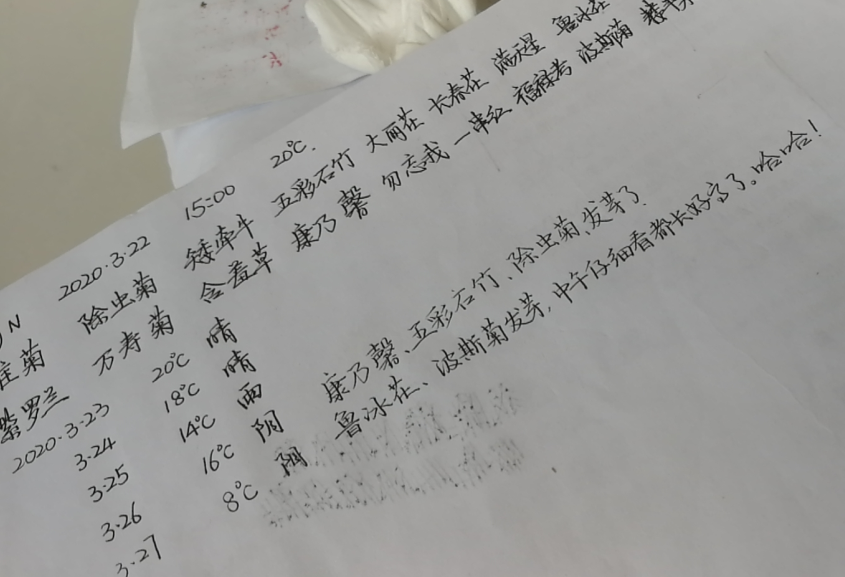 N 2020.3.22 15:00 20℃.
菊 除虫菊 矮牵牛 五彩石竹 大丽花 长春花 满天星 鲁冰花
紫罗兰 万寿菊 含羞草 康乃馨 勿忘我 一串红 福禄考 波斯菊
2020.3.23 20℃ 晴
3.24 18℃ 晴
3.25 14℃ 雨
3.26 16℃ 阴 康乃馨、五彩石竹、除虫菊、发芽了
3.27 8℃ 阴 鲁冰花、波斯菊发芽,中午仔细看都长好高了。哈哈!